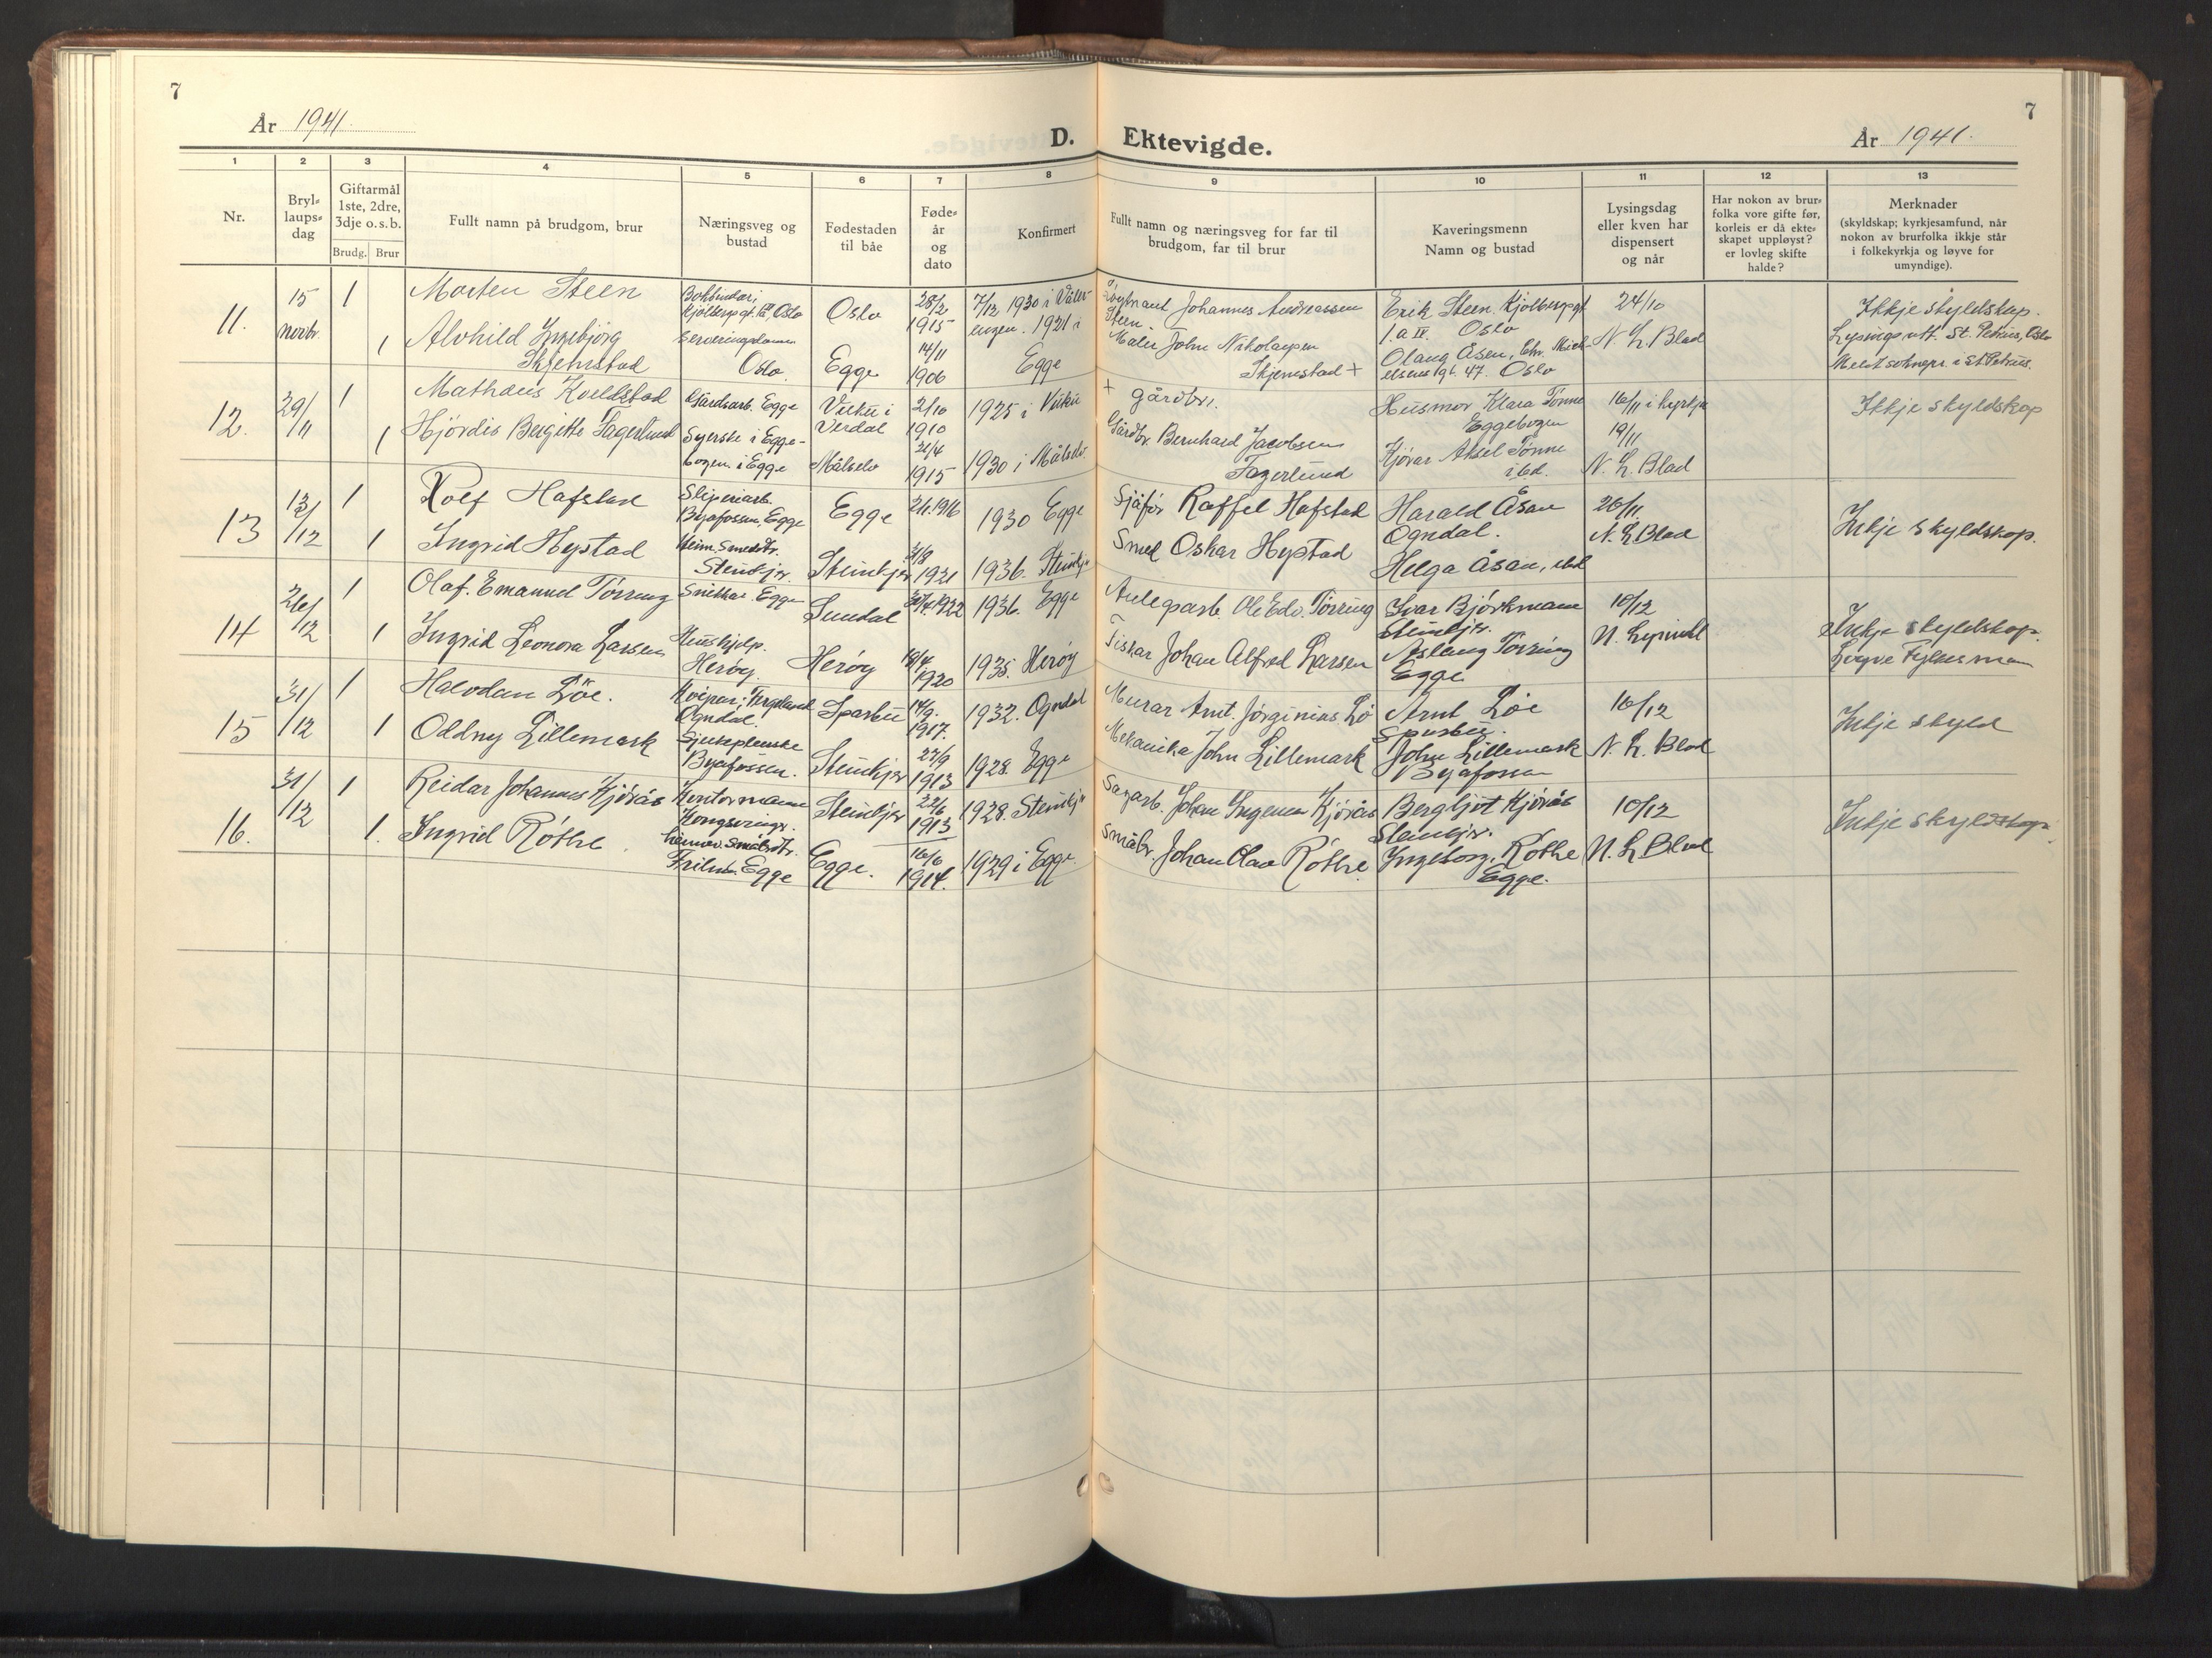 7
År 1941.
D. Ektevigde.
År 1941.
7
1 2 3 4 5 6 7 8 9 10 11 12 13
Nr.
Bryl-
laups-
dag
Giftarmål
1ste, 2dre,
3dje o. s. b.
Brudg. Brur
Fullt namn på brudgom, brur
Næringsveg og
bustad
Fødestaden
til båe
Føde-
år
og
dato
Konfirmert
Fullt namn og næringsveg for far til
brudgom, far til brur
Kaveringsmenn
Namn og bustad
Lysingsdag
eller kven har
dispensert
og når
Har nokon av brur-
folka vore gifte før,
korleis er då ekte-
skapet uppløyst?
er lovleg skifte
halde?
Merknader
(skyldskap; kyrkjesamfund, når
nokon av brurfolka ikkje står
i folkekyrkja og løyve for
umyndige).
11. 15 novbr. 1
Morten Steen
Oslo
28/2 1915
7/12 1930 i Våler-
engen. 1921 i
Johannes Andreassen
Steen.
Erik Steen. Kjølberggt.
1.a IV. Oslo
24/10
Ikkje skyldskap.
1 Alvhild Ingebjørg
Skjemstad
Oslo.
Egge
14/11 1906
Egge
Maler John Nikolaysen
Skjemstad +
Olaug Åsen, Chr. Mick-
elsens gt. 47. Oslo
N. L. Blad
Lysingsatt. St. Petrus, Oslo
12. 29/11 1
Mathæus Kveldstad
Gårdsarb. Egge
Vuku i
Verdal
2/10 1910
1925 i Vuku
+ gårdbr.
Husmor Klara Tønne
Eggebogen
16/11 i kyrkja
19/11
Ikkje skyldskap
1 Hjørdis Bergitte Fagerlund
Syerske i Egge-
bogen. i Egge
Målselv
21/4 1915
1930 i Målselv.
Gårdbr Bernhard Jacobsen
Fagerlund
Aksel Tønne
ibd.
N. L. Blad
13 13/12 1
Rolf Hafstad
Sliperiarb.
Byafossen, Egge
Egge
2/1. 1916
1930 Egge
Sjåfør Raffel Hafstad
Harald Åsan
Ogndal.
26/11
N. L. Blad
Inkje skyldskap.
1 Ingrid Hystad
Heim. Smedbr.
Steinkjer.
Steinkjer
1921
1936. Steinkjer
Smed Oskar Hystad
Helga Åsan, ibd
14 26/12 1
Olaf. Emanuel Tørring
Snikkar. Egge
1922
1936. Egge
Anlegsarb. Ole Edv. Tørring
Ivar Bjørkmann
Steinkjer.
10/12
Inkje skyldskap.
1 Ingrid Leonora Larsen
Hushjelp.
Herøy.
Herøy
1920
1935. Herøy
Fiskar Johan Alfred Larsen
Aslaug Tørring
Egge
Løyve Fylkesman
15 31/12 1
Halvdan Løe.
Ogndal.
Sparbu
14/9. 1917.
1932. Ogndal
Murar Arnt. Jørginius Lø
Arnt Løe
Sparbu.
10/12
Inkje skyld
1 Oddny Lillemark
Sjukepleiske
Byafossen.
Steinkjer
27/9 1913
1928. Egge
Mekanika John Lillemark
John Lillemark
Byafossen
N. L. Blad
16. 31/12 1
Reidar Johannes Kjørås
Kontormann
Kongsvinger.
Steinkjer
22/6 1913
1928. Steinkjer
Sagarb. Johan Ingeman Kjørås
Bergljot Kjørås
Steinkjer.
10/12
Inkje skyldskap.
1. Ingrid Røthe
Egge
Egge.
16/6 1914.
1929 i Egge.
Småbr. Johan Olav Røthe
Ingeborg. Røthe
Egge.
N. L. Blad